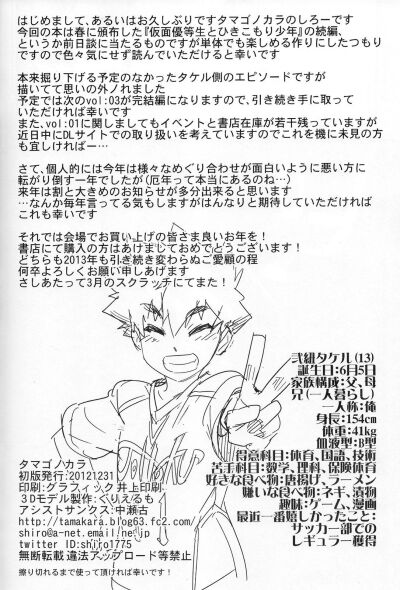 はじめまして、あるいはお久しぶりですタマゴノカラのしろーです
今回の本は春に頒布した『仮面優等生とひきこもり少年』の続編、
というか前日談に当たるものですが単体でも楽しめる作りにしたつもり
ですので色々気にせず読んでいただけると幸いです
本来掘り下げる予定のなかったタケル側のエピソードですが
描いてて思いの外ノれました
予定では次のvol:03が完結編になりますので、引き続き手に取って
いただければ幸いです
また、vol:01に関しましてもイベントと書店在庫が若干残っていますが
近日中にDLサイトでの取り扱いを考えていますのでこれを機に未見の方
も宜しければー…
さて、個人的には今年は様々なめぐり合わせが面白いように悪い方に
転がり倒す一年でしたが(厄年って本当にあるのね…)
来年は割と大きめのお知らせが多分出来ると思います
…なんか毎年言ってる気もしますがはんなりと期待していただければ
これも幸いです
それでは会場でお買い上げの皆さま良いお年を!
書店にて購入の方はあけましておめでとうございます!
どちらも2013年も引き続き変わらぬご愛顧の程
何卒よろしくお願い申しあげます
さしあたって3月のスクラッチにてまた!
弐紐タケル(13)
誕生日:6月5日
家族構成:父、母
兄(一人暮らし)
人称:俺
身長:154cm
体重:41kg
血液型:B型
得意科目:体育、国語、技術
苦手科目:数学、理科、保険体育
好きな食べ物:唐揚げ、ラーメン
嫌いな食べ物:ネギ、漬物
趣味:ゲーム、漫画
最近一番嬉しかったこと:
サッカー部での
レギュラー獲得
タマゴノカラ
初版発行:20121231
印刷:グラフィック井上印刷
3Dモデル製作:ぐりえるも
アシストサンクス:中瀬古
http://tamakara.blog63.fc2.com/
shiro@a-net.email.ne.jp
twitter ID:shiro1775
無断転載 違法アップロード等禁止
擦り切れるまで使って頂ければ幸いです!